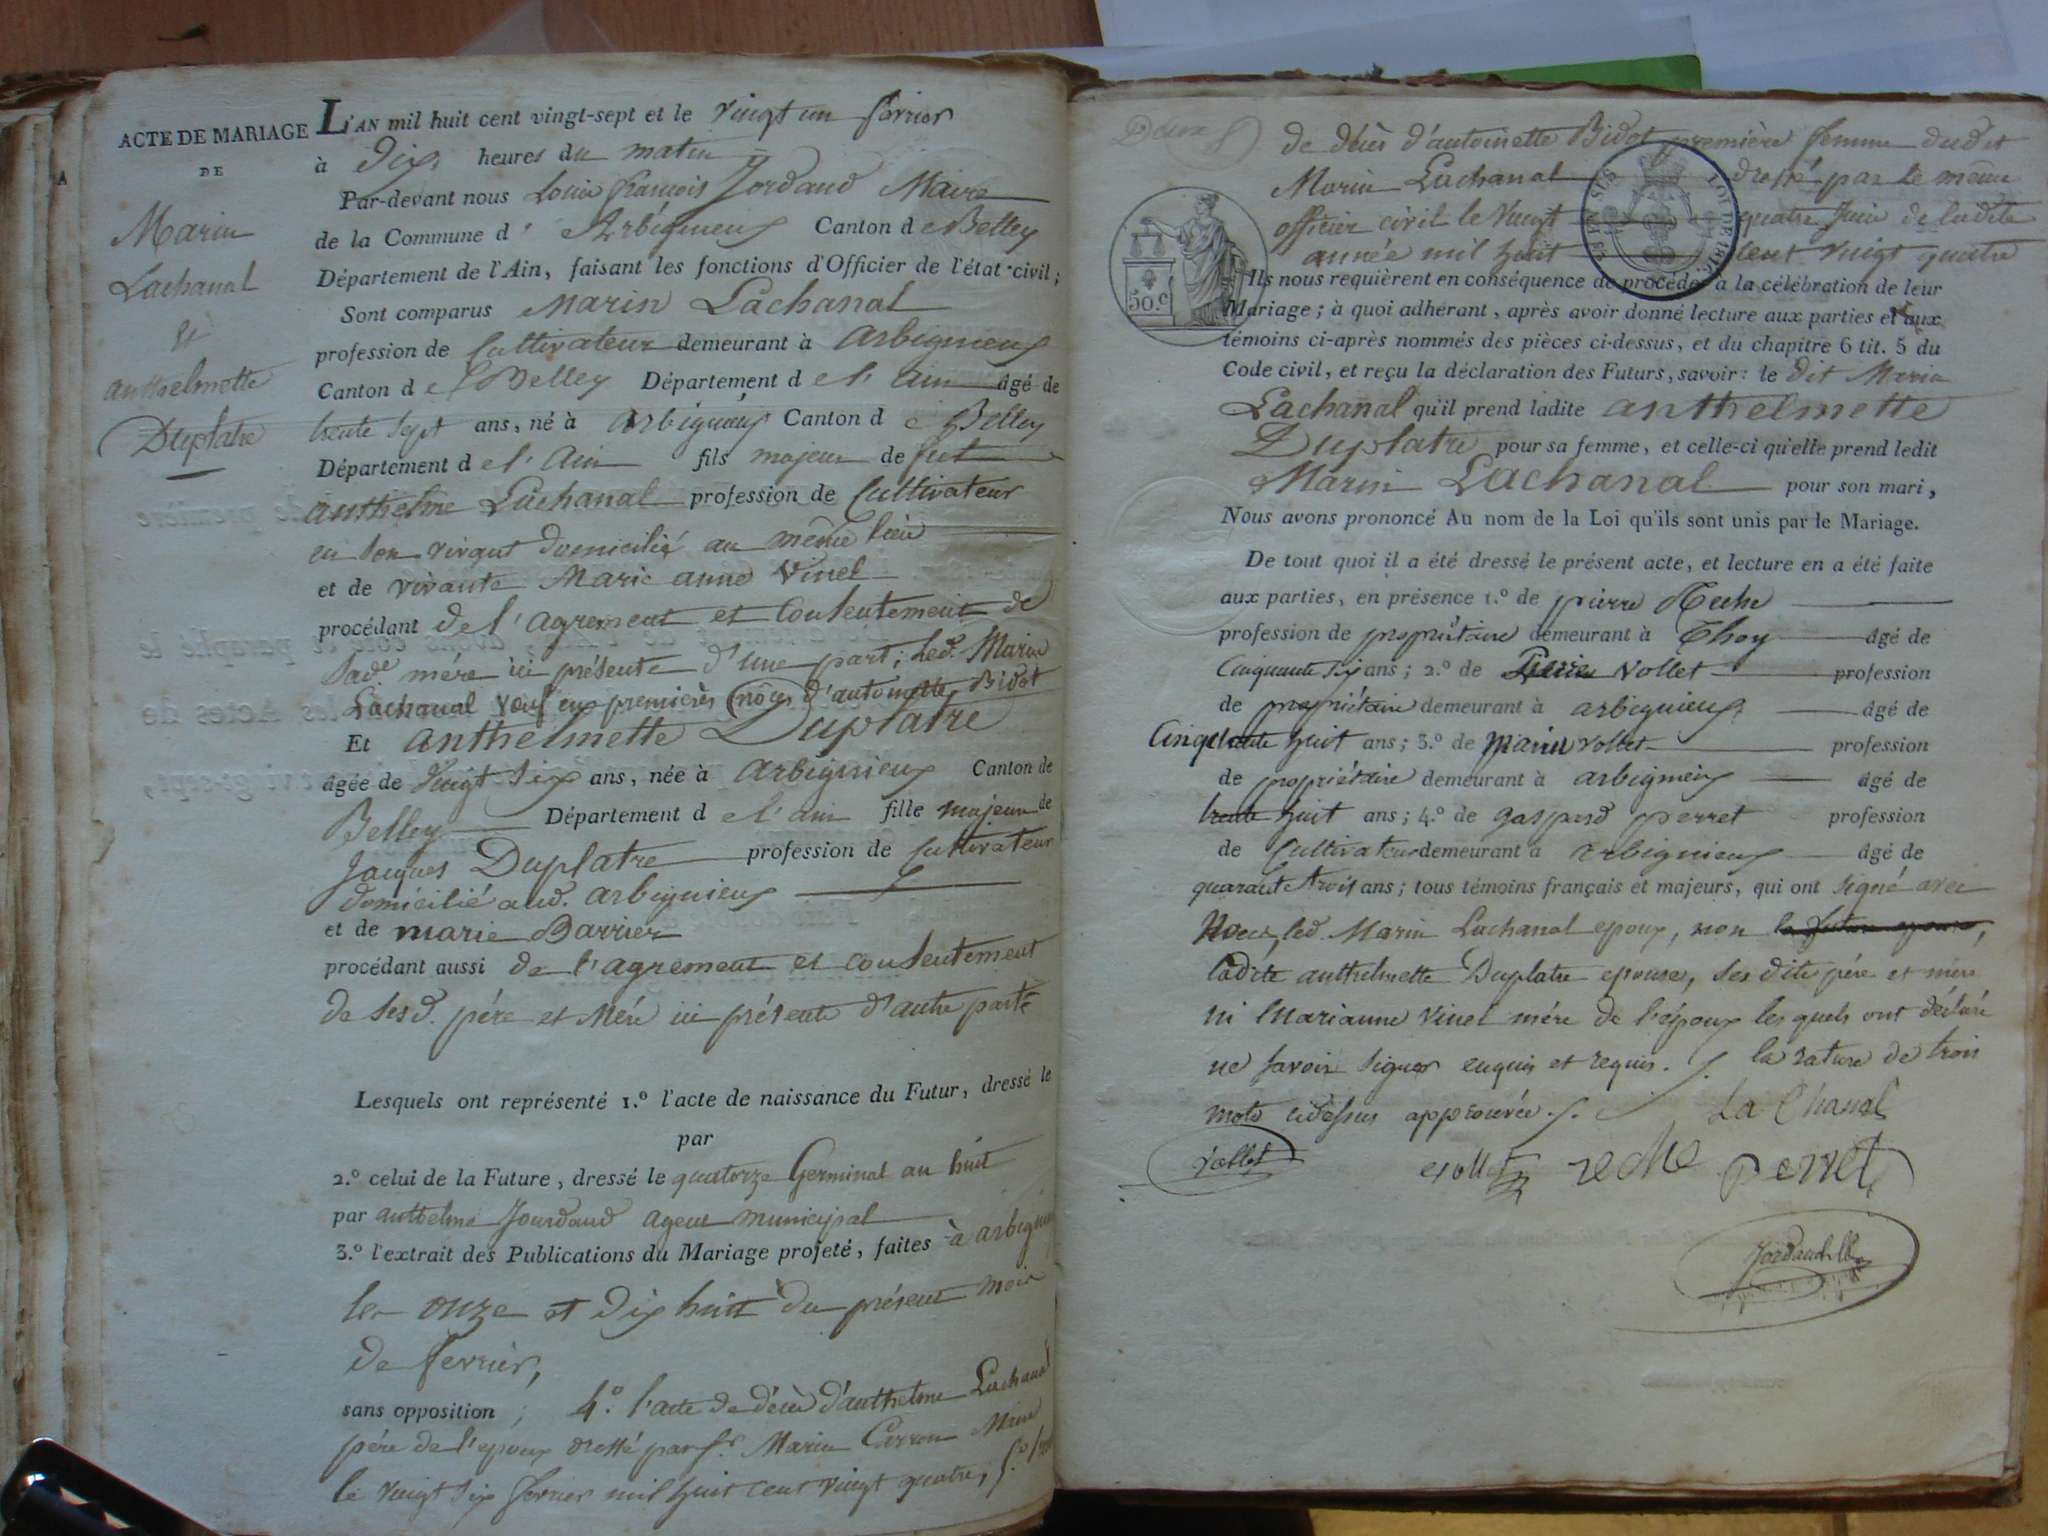 ACTE DE MARIAGE
DE
Marin
Lachanal
Et
anthelmette
Duplatre
L'AN mil huit cent vingt-sept et le vingt un fevrier
à Dix heures du matin
Par-devant nous Louis françois Jordand Maire
de la Commune d' Arbignieux Canton de Belley
Département de l'Ain, faisant les fonctions d'Officier de l'état civil;
Sont comparus Marin Lachanal
profession de Cultivateur demeurant à arbignieux
Canton de Belley Département de l'ain âgé de
trente sept ans, né à arbignieux Canton de Belley
Département de l'Ain fils majeur de fut
anthelme Lachanal profession de Cultivateur
en son vivant domicilié au même lieu
et de vivante Marie anne Vinel
procédant de l'agrement et consentement de
sad.e mére ici présente d'une part; led. Marin
Lachanal veuf en premières nôces d'antoinette Bidot
Et anthelmette Duplatre
âgée de Vingt six ans, née à arbignieux Canton de
Belley Département de l'ain fille majeure de
Jacques Duplatre profession de Cultivateur
domicilié aud. arbignieux
et de marie Barrier
procédant aussi de l'agrement et consentement
de sesd. pére et Mére ici présente d'autre parte
Lesquels ont représenté 1.º l'acte de naissance du Futur, dressé le
par
2.º celui de la Future, dressé le quatorze Germinal an huit
par anthelme Jourdand agent municipal
3.º l'extrait des Publications du Mariage projeté, faites à arbignieux
les onze et dix huit du présent mois
de fevrier,
sans opposition; 4.º l'acte de décès d'anthelme Lachanal
pére de l'epoux dressé par Sr. Marin Carron Maire
le vingt six fevrier mil huit cent vingt quatre, 5.º
de décès d'antoinette Bidot première femme dudit
Marin Lachanal dressé par le même
officier civil le vingt quatre Juin de ladite
année mil huit cent vingt quatre
50.c
Ils nous requièrent en conséquence de procéder à la célébration de leur
Mariage; à quoi adhérant, après avoir donné lecture aux parties et aux
témoins ci-après nommés des pièces ci-dessus, et du chapitre 6 tit. 5 du
Code civil, et reçu la déclaration des Futurs, savoir: le dit Marin
Lachanal qu'il prend ladite anthelmette
Duplatre pour sa femme, et celle-ci qu'elle prend ledit
Marin Lachanal pour son mari,
Nous avons prononcé Au nom de la Loi qu'ils sont unis par le Mariage.
De tout quoi il a été dressé le présent acte, et lecture en a été faite
aux parties, en présence 1.º de pierre Reche
profession de propriétaire demeurant à Thoy âgé de
Cinquante six ans; 2.º de Pierre Vollet profession
de propriétaire demeurant à arbignieux âgé de
Cinquante huit ans; 3.º de Marin Vollet profession
de propriétaire demeurant à arbignieux âgé de
trente huit ans; 4.º de gaspard perret profession
de Cultivateur demeurant à arbignieux âgé de
quarante trois ans; tous témoins français et majeurs, qui ont signé avec
Nous, led. Marin Lachanal epoux, non la future epouse,
ladite anthelmette Duplatre epouse, ses dits pére et mére
ni Marianne Vinel mére de l'époux lesquels ont déclaré
ne savoir signer enquis et requis. la rature de trois
mots cidessus approuvée.
La Chanal
Vollet vollet reche perret
Jordand